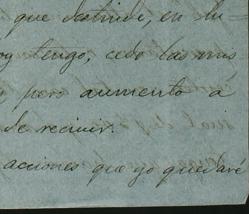 que destinde, en la
oy tengo, cedo las mis
pero aumento á
de recivir.
acciones que yo quedaré